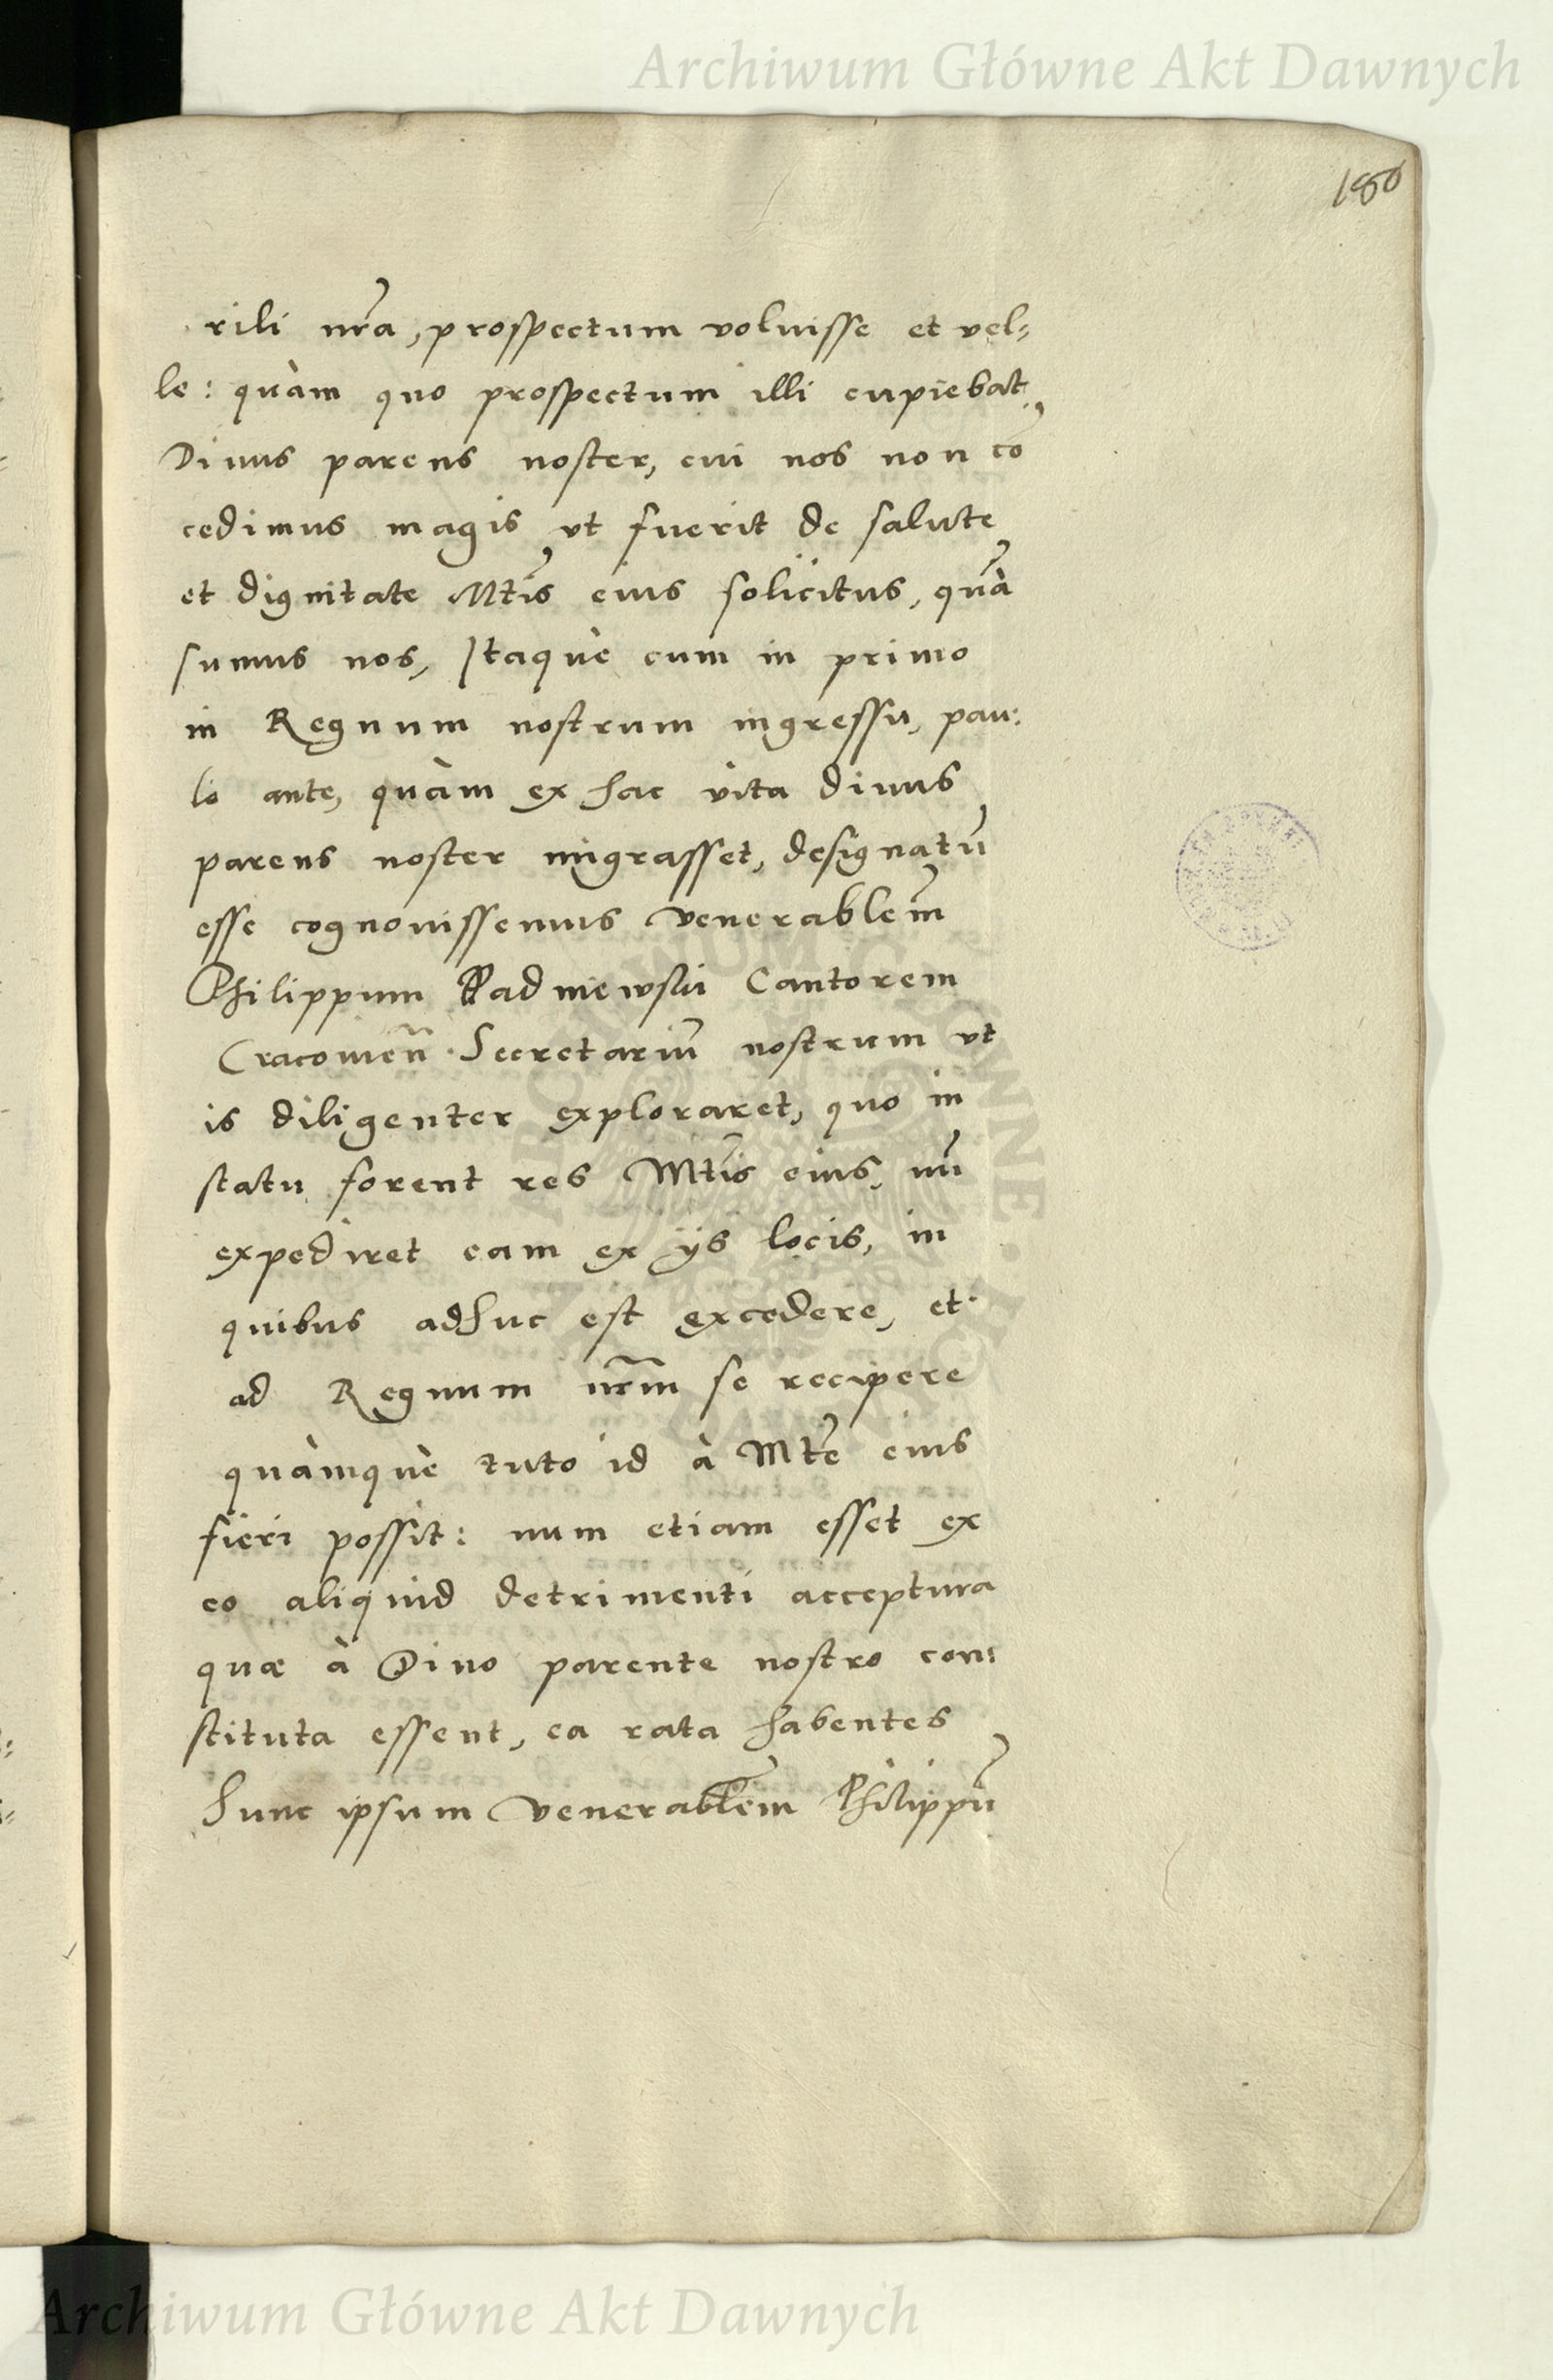 Archiwum Główne Akt Dawnych
180
rili nr̃a, prospectum voluisse et vel=
le: quàm quo prospectum illi cupiebat
Diuus parens noster, cui nos non cõ
cedimus magis vt fuerit de salute
et dignitate Mtis̃ eius solicitus, quã
sumus nos, Itaquè cum in primo
in Regnum nostrum ingressu, pau:
lo ante, quàm ex hac vita diuus
parens noster migrasset, designatũ
esse cognouissemus venerablem̃
Philippum Padniewski Cantorem
Cracouien̄ Secretariũ nostrum vt
is diligenter exploraret, quo in
statu forent res Mtis̃ eius, nũ
expediret eam ex ijs locis, in
quibus adhuc est excedere, et
ad Regnum nr̃m se recipere
quàmquè tuto id à Mte̓ eius
fieri possit: num etiam esset ex
eo aliquid detrimenti acceptura
quæ à Diuo parente nostro con:
stituta essent, ea rata habentes
hunc ipsum venerablem̃ Philippũ
Archiwum Główne Akt Dawnych